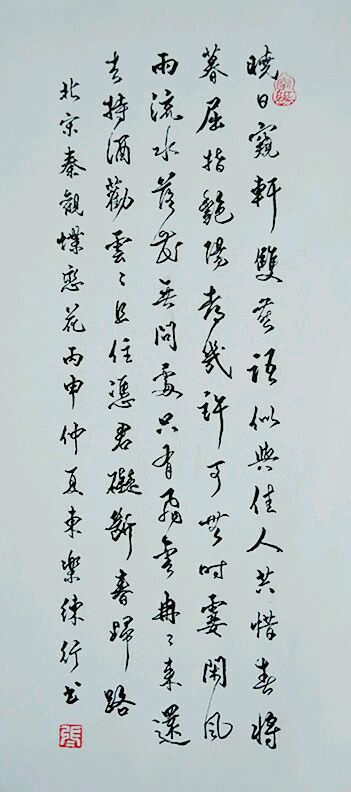 曉日窺軒雙燕語似與佳人共惜春將
暮屈指艷陽都幾許可無時霎閑風
雨流水落花無問處只有飛雲冉〻來還
去持酒勸雲〻且住憑君礙斷春歸路
北宋秦觀蝶戀花丙申仲夏東樂練行書